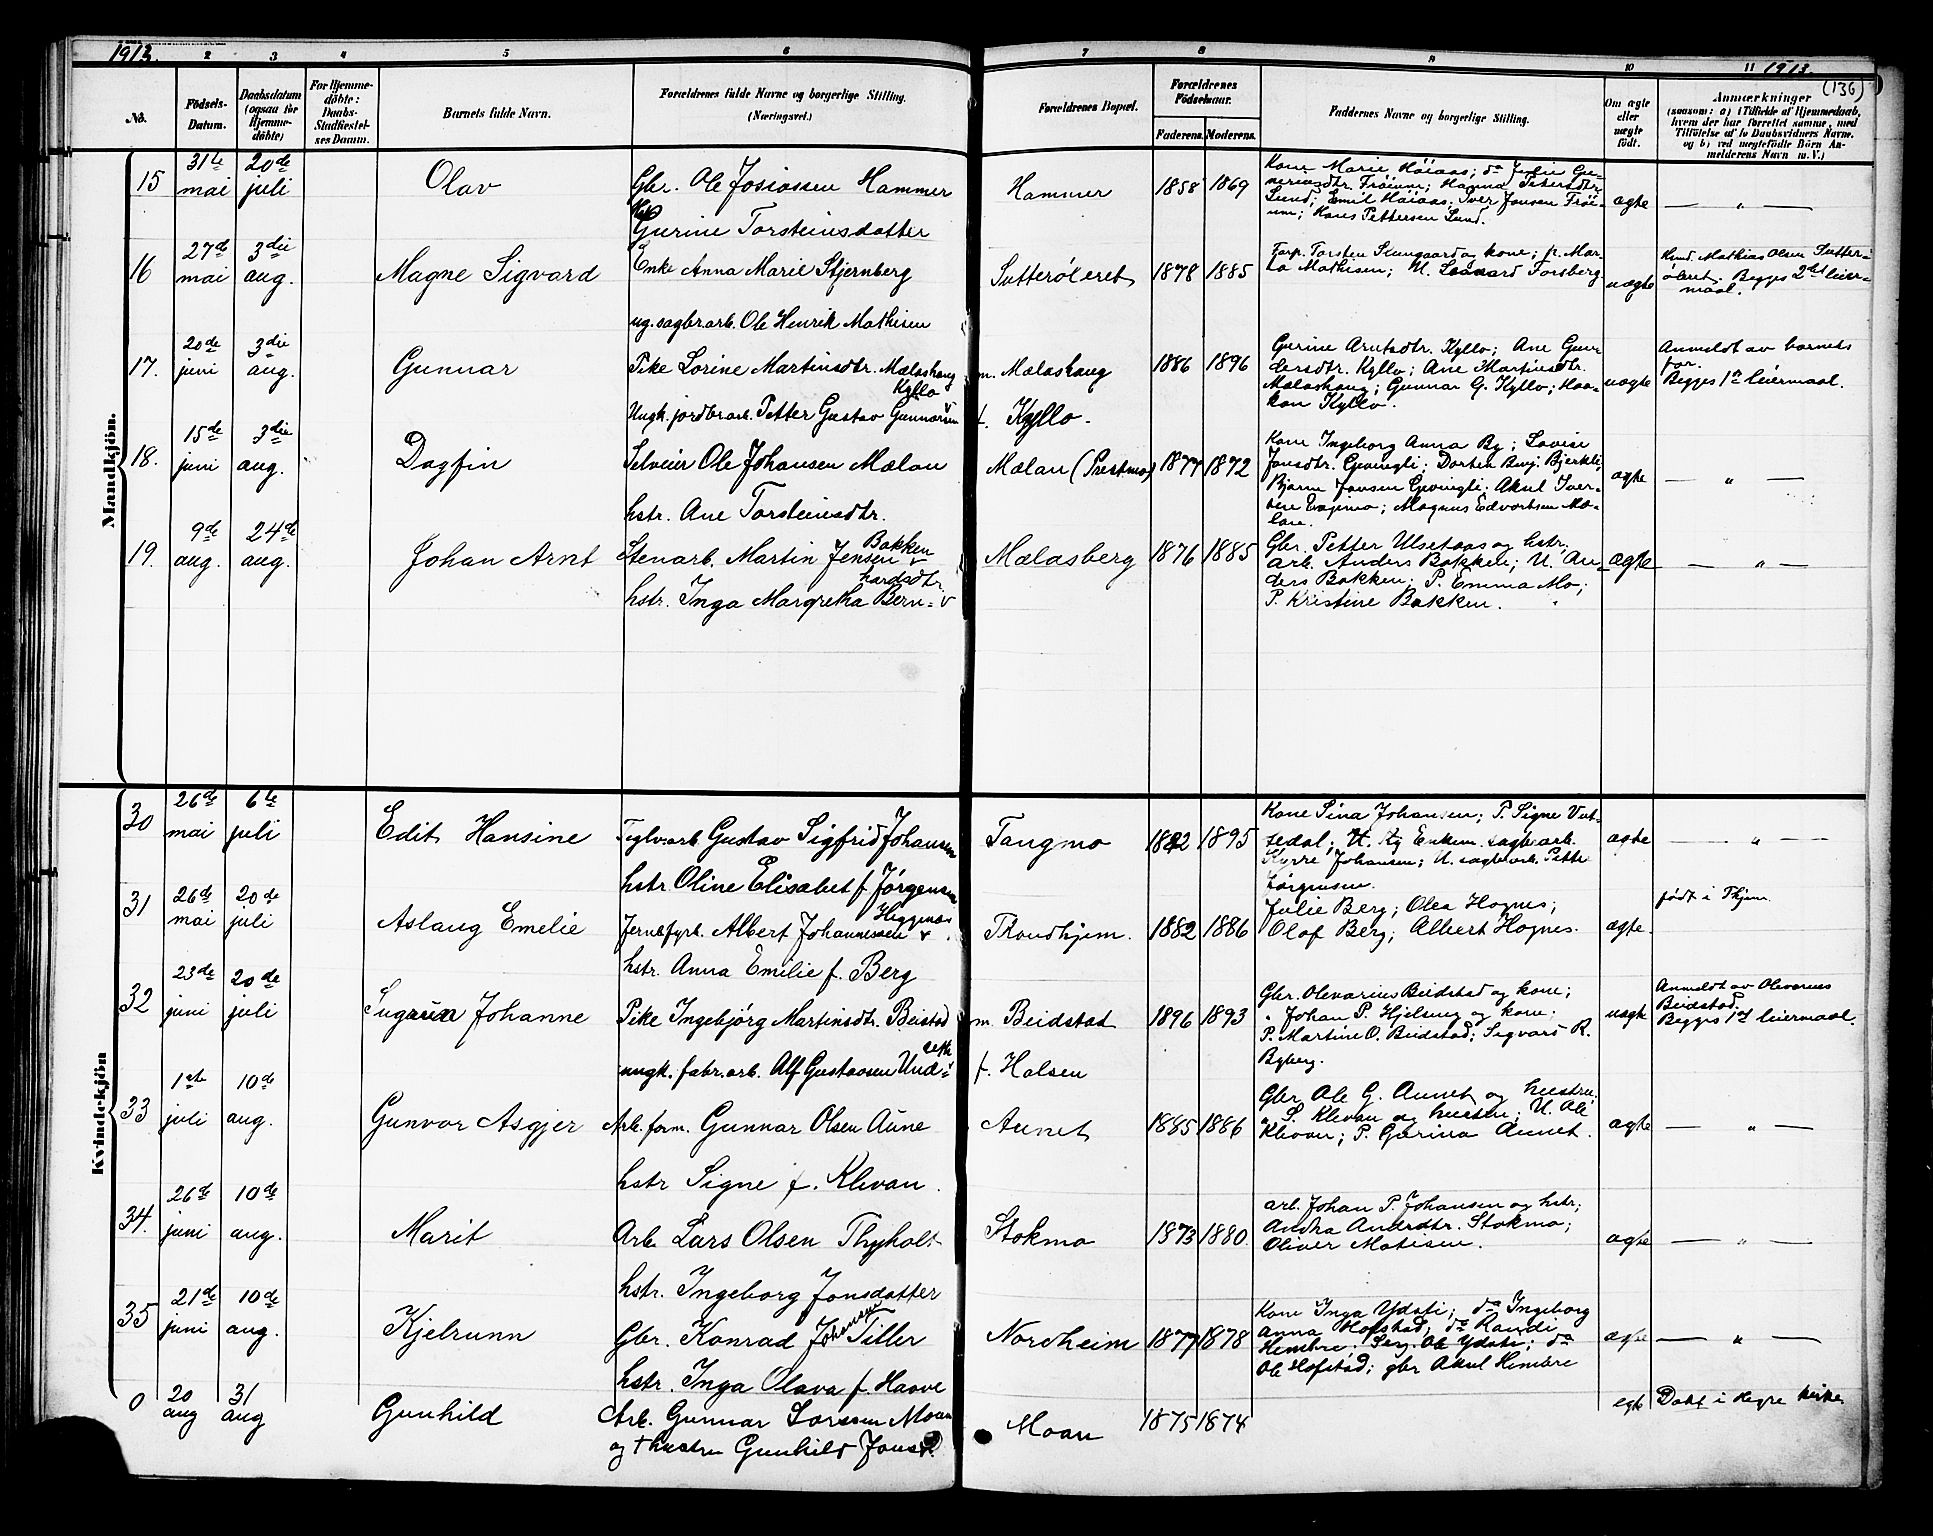 1913.
2 3 4 5 6 7 8 9 10 11
1913.
(136)
No.
Födsels-
Datum.
Daabsdatum
(ogsaa for
Hjemme-
döbte)
For Hjemme-
döbte:
Daabs-
Stadfæstel-
ses Datum.
Barnets fulde Navn.
Forældrenes fulde Navne og borgerlige Stilling.
(Næringsvei.)
Forældrenes Bopæl.
Forældrenes
Födselsaar.
Faderens. Moderens.
Faddernes Navne og borgerlige Stilling.
Om ægte
eller
uægte
födt.
Anmærkninger
(saasom: a) i Tilfælde af Hjemmedaab,
hvem der har forrettet samme, med
Tilföielse af to Daabsvidners Navne.
og b) ved uægtefödte Börn An-
melderens Navn m. V.)
Mandkjön.
15 31te mai 20de juli Olav
Gbr. Ole Josiassen Hammer
Gurine Torsteinsdatter
Hammer 1858 1869
Kone Marie Höiaas; do Julie Ge-
neriusdtr. Fröium; Hanna Petersdtr.
Lund; Emil Höiaas; Iver Jonsen Fröi-
um; Hans Pettersen Lund.
ægte — " —
16 27de mai 3die aug. Magne Sigvard
Enke Anna Marie Stjernberg
ug. sagbr.arb. Ole Henrik Mathisen
Sutteröleret 1878 1885
Forp. Torsten Stungaard og kone; p. Mar-
ta Mathisen; U. Leonard Forsberg
uægte
Kund. Mathias Olsen Sutter-
öleret. Begges 2det leier-
maal.
17. 20de juni 3die aug. Gunnar
Pike Lorine Martinsdtr. Mælashaug
Kyllo
Ungk. jordbr.arb. Petter Gustav Gunnarsen
m. Mælashaug
f. Kyllo.
1886 1896
Gurine Arntsdtr. Kyllo; Ane Gun-
dersdtr. Kyllo; Ane Martinsdtr.
Mælashaug; Gunnar G. Kyllo; Haa-
kon Kyllo.
uægte
Anmeldt av barnets
far.
Begges 1ste leiermaal.
18. 15de juni 3die aug. Dagfin
Selveier Ole Johansen Mælan
hstr. Ane Torsteinsdtr.
Mælan (Prestmo) 1877 1872
Kone Ingeborg Anna By; Lovise
Jonsdtr. Gevingli; Dorten Bernj. Bjerkli;
Bjarne Jonsen Gevingli; Aksel Iver-
sen Evjemo; Magnus Edvartsen Mæ-
lan.
ægte — " —
19. 9de aug. 24de aug. Johan Arnt
Bakken
Stenarb. Martin Jensen
hardsdtr.
hstr. Inga Margretha Bern-
Mælasberg 1876 1885
Gbr. Petter Ulsetaas og hstr;
arb. Anders Bakken; U. An-
ders Bakken; P. Emma Mo;
P. Kristine Bakken.
ægte — " —
Kvindekjön
30 26de mai 6te juli Edit Hansine
Teglv.arb Gustav Sigfrid Johansen
hstr Oline Elisabet f. Jørgensen
Tangmo 1892 1895
Kone Sina Johansen; P. Signe Vut-
sedal; U. Kg Enkem. sagbr.arb.
Kyrre Johansen; U. sagbr.arb. Petter
Jørgensen.
ægte — " —
31 26de mai 20de juli Aslaug Emelie
Heggenes
Jernb.fyrb. Albert Johannessen
hstr. Anna Emilie f. Berg
Trondhjem. 1882 1886
Julie Berg; Olea Hognes;
Olof Berg; Albert Hognes.
ægte.
født i Thjem.
32 23de juni 20de juli Johanne
Pike Ingebjörg Martinsdtr. Beistad
ungk. fabr.arb. Alf Gustavsen Und-
seth
m. Beidstad
f. Halsen
1896 1893
Gbr. Olevarius Beidstad og kone;
" Johan P. Hjelseng og kone;
P. Martine O. Beidstad; Sigvart R.
Byberg.
uægte
Anmeldt av Olevarius
Beidstad,
Begges 1ste leiermaal.
33 1ste juli 10de aug. Gunvor Asgjer
Arb.form. Gunnar Olsen Aune
hstr Signe f. Klevan.
Aunet 1885 1886
Gbr Ole G. Aunet og hustru;
" S. Klevan og hustru; U. Ole
Klevan; P. Gurina Aunet.
ægte — " —
34. 26de juni 10de aug. Marit
Arb. Lars Olsen Thyholt
hstr. Ingeborg Jonsdatter
Stokmo 1873 1880.
arb. Johan P. Johansen og hstr;
Andrea Andersdtr. Stokmo;
Oliver Matisen.
ægte — " —
35 21de juni 10de aug. Kjelrunn
Johansen
Gbr. Konrad Tiller
hstr. Inga Olava f. Haave
Nordheim 1877 1878
Kone Inga Ydsti; do Ingeborg
Anna Hofstad; do Randi
Hembre; Serg. Ole Ydsti; do
Ole Hofstad; gbr Aksel Hembre
ægte — " —
0 20 aug 31 aug Gunhild
Arb. Gunnar Larssen Moan
og † hustru Gunhild Jonsd.
Moan 1875 1874
egte Døbt i Hegre kirke